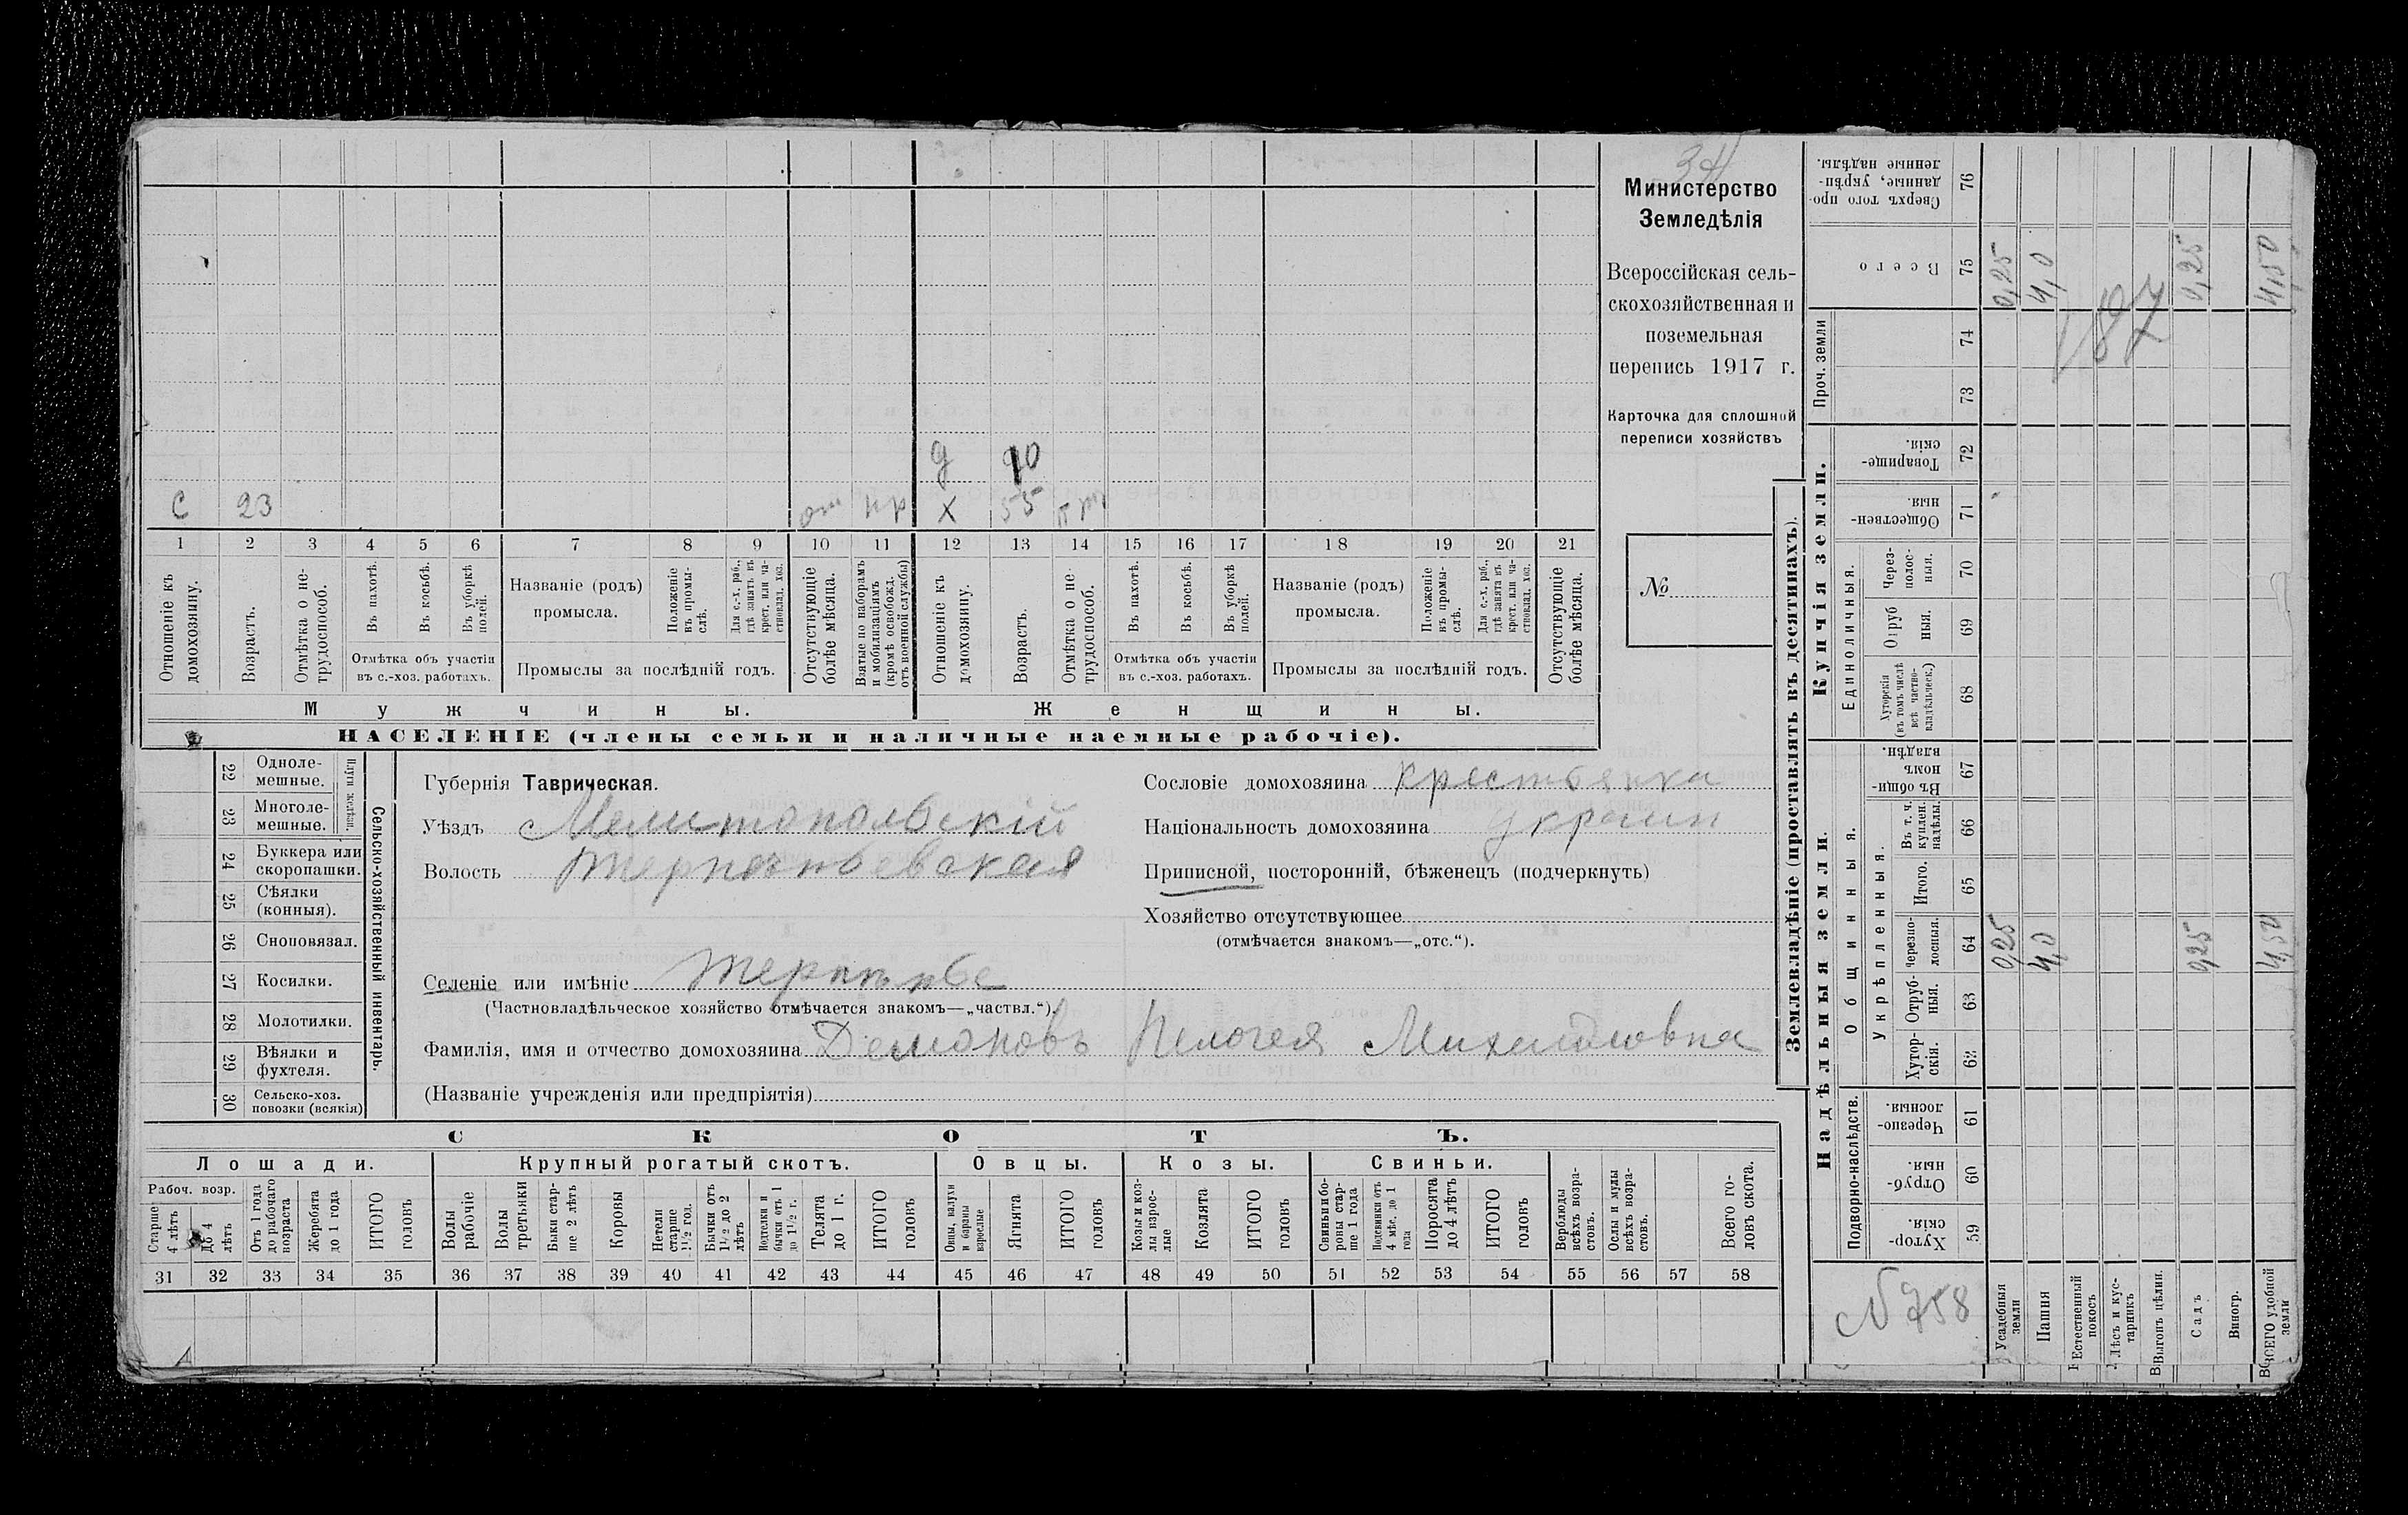 Министерство
Земледѣлія
Всероссійская сель-
скохозяйственная и
поземельная
перепись 1917 г.
Карточка для сплошной
переписи хозяйствъ
№
д 10
С 23 от пр х 55
1 2 3 4 5 6 7 8 9 10 11 12 13 14 15 16 17 18 19 20 21
Отношеніе къ домохозяину.
Возрастъ.
Отмѣтка о не-трудоспособ.
Въ пахотѣ.
Въ косьбѣ.
Въ уборкѣ полей.
Отмѣтка объ участіи
въ с.-хоз. работахъ.
Названіе (родъ)
промысла.
Положеніе въ промы-слѣ.
Для с.-х. раб., гдѣ занятъ въ крест. или ча-стновлад. хоз.
Промыслы за послѣдній годъ.
Отсутствующіе болѣе мѣсяца.
Взятые по наборамъ и мобилизаціямъ (кромѣ освобожд. отъ военной службы)
Отношеніе къ домохозяину.
Возрастъ.
Отмѣтка о не-трудоспособ.
Въ пахотѣ.
Въ косьбѣ.
Въ уборкѣ полей.
Отмѣтка объ участіи
въ с.-хоз. работахъ.
Названіе (родъ)
промысла.
Положеніе въ промы-слѣ.
Для с.-х. раб., гдѣ занята въ крест. или ча-стновлад. хоз.
Промыслы за послѣдній годъ.
Отсутствующіе болѣе мѣсяца.
Мужчины. Женщины.
НАСЕЛЕНІЕ (члены семьи и наличные наемные рабочіе).
22 Одноле-мешные.
23 Многоле-мешные.
Плуги желѣзн.
24 Буккера или скоропашки.
25 Сѣялки (конныя).
26 Сноповязал.
27 Косилки.
28 Молотилки.
29 Вѣялки и фухтеля.
30 Сельско-хоз. повозки (всякія)
Сельско-хозяйственный инвентарь.
Губернія Таврическая.
Уѣздъ Мелитопольскій
Волость Терпеньевская
Селеніе или имѣніе Терпенье
(Частновладѣльческое хозяйство отмѣчается знакомъ—„частвл.“).
Сословіе домохозяина крестьянка
Національность домохозяина украин
Приписной, посторонній, бѣженецъ (подчеркнуть)
Хозяйство отсутствующее
(отмѣчается знакомъ—„отс.“).
Фамилія, имя и отчество домохозяина Демоновъ Пелагея Михайловна
(Названіе учрежденія или предпріятія)
СКОТЪ.
Лошади. Крупный рогатый скотъ. Овцы. Козы. Свиньи.
Рабоч. возр.
Старше 4 лѣтъ
до 4 лѣтъ
Отъ 1 года до рабочаго возраста
Жеребята до 1 года
ИТОГО головъ
Волы рабочіе
Волы третьяки
Быки стар-ше 2 лѣтъ
Коровы
Нетели старше 1½ год.
Бычки отъ 1½ до 2 лѣтъ
Подтелки и бычки отъ 1 до 1½ г.
Телята до 1 г.
ИТОГО головъ
Овцы, валухи и бараны взрослые
Ягнята
ИТОГО головъ
Козы и коз-лы взрос-лые
Козлята
ИТОГО головъ
Свиньи и бо-ровы стар-ше 1 года
Подсвинки отъ 4 мѣс. до 1 года
Поросята до 4 лѣтъ
ИТОГО головъ
Верблюды всѣхъ возра-стовъ.
Ослы и мулы всѣхъ возра-стовъ.
Всего го-ловъ скота.
31 32 33 34 35 36 37 38 39 40 41 42 43 44 45 46 47 48 49 50 51 52 53 54 55 56 57 58
Землевладѣніе (проставлять въ десятинахъ).
Сверхъ того про-данные, укрѣп-ленные надѣлы. 76
Всего 75 0,25 4,0 0,25 4,50
187
Проч. земли 74 73
Купчія земли.
Товарище-скія. 72
Обществен-ныя. 71
Единоличныя.
Через-полос-ныя. 70
Отруб ныя. 69
Хуторскія (въ томъ числѣ всѣ частно-владѣльческ.) 68
Надѣльныя земли.
Общинныя.
Въ общи-номъ владѣн. 67
Укрѣпленныя.
Въ т. ч. куплен. надѣлы. 66
Итого. 65
Черезпо-лосныя. 64 0,25 4,0 0,25 4,50
Отруб-ныя. 63
Хутор-скія. 62
Подворно-наслѣдств.
Черезпо-лосныя. 61
Отруб-ныя. 60
Хутор-скія. 59
N 758
Усадебныя земли
Пашня
Естественный покосъ
Лѣсъ и кус-тарникъ
Выгонъ цѣлин.
Садъ
Виногр.
ВСЕГО удобной земли